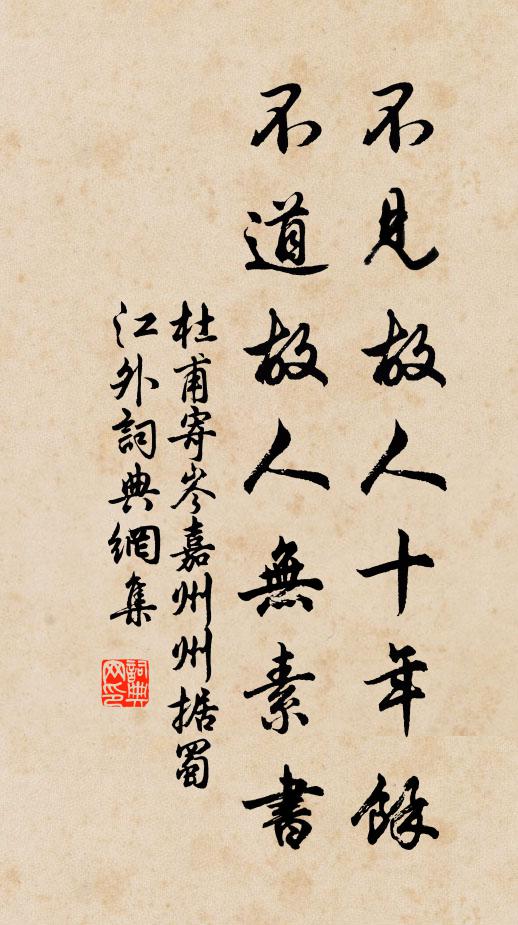 不見故人十年餘
不道故人無素書
杜甫寄岑嘉州州据蜀
江外詞典網集
詞典
网印